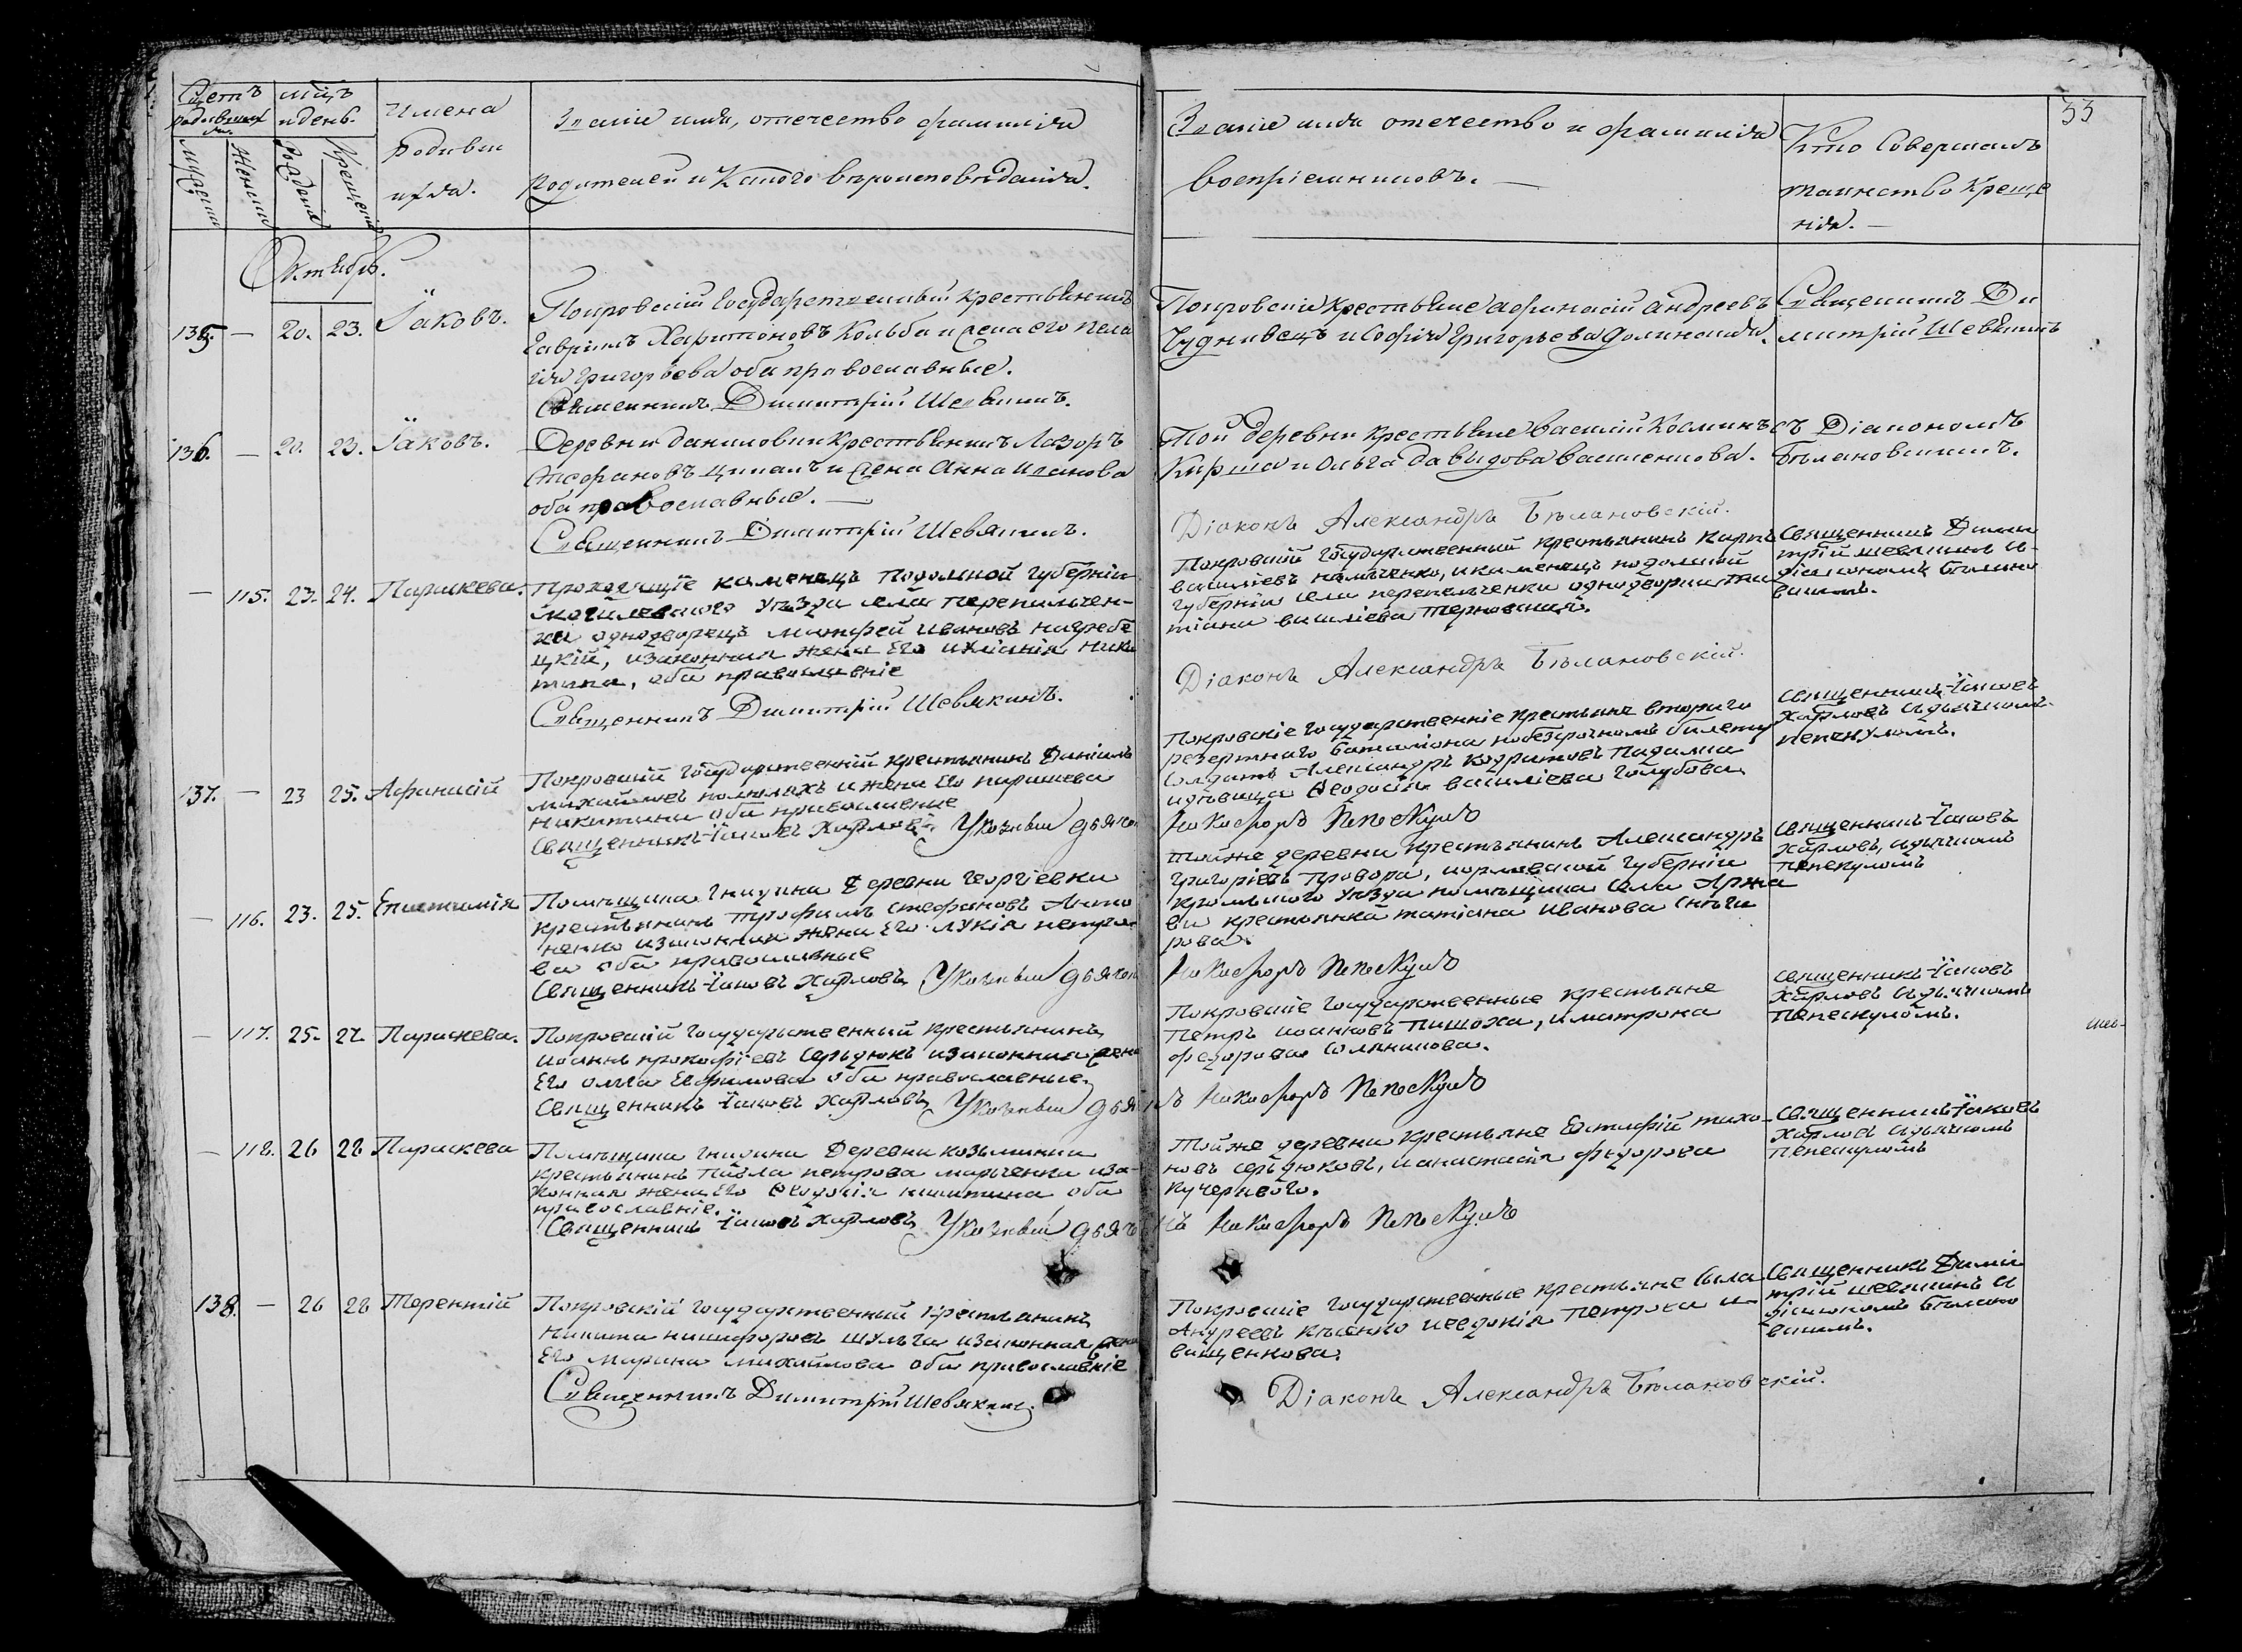 Счетъ родившихся.
мѣсяцъ и день.
Имена
родивши
ихся.
Званіе имя, отечество фамилія
родителей и какого вѣроисповѣданія.
мужеска
женска
рожденія
крещенія
Званіе имя отечество и фамилія
воспріемниковъ.
Кто Совершалъ
таинство креще
нія.
33
Октябрь.
135. — 20. 23. Іаковъ.
Покровскій Государственный крестьянинъ
Гавріилъ Харитоновъ Кольба и жена его Пела
гія Григорьева оба православные.
Священникъ Димитрій Шевякинъ.
Покровскіе крестьяне Афанасій Андреевъ
Чудновецъ и Софія Григорьева
Священникъ Ди
митрій Шевякинъ
136. — 20. 23. Іаковъ.
Деревни Даниловки крестьянинъ Лазоръ
Стефановъ и жена Анна Иванова
оба православные.
Священникъ Димитрій Шевякинъ.
Той деревни крестьяне Василій Косминъ
Кирша и Ольга Давыдова Василенкова.
съ Діакономъ
Бѣлановскимъ.
Діаконъ Александръ Бѣлановскій.
— 115. 23. 24. Параскева.
Проходящіе каменецъ подолской губерніи
могилевскаго уѣзда села Перепильчен-
ки однодворецъ Матфей Ивановъ Нагребе
цкій, и законная жена его Уліанія Ники
тина, оба православніе
Священникъ Димитрій Шевякинъ.
Покровскій государственный крестьянинъ Карпъ
василіевъ, и каменецъ подолской
губерніи села перепельченки однодворка Та
тіана василіева Терновская.
Священникъ Дими
трій шевякинъ и
діакономъ Бѣлано
вскимъ.
Діаконъ Александръ Бѣлановскій.
137. — 23 25. Афанасій
Покровскій государственній крестьянинъ Даніилъ
михайловъ и жена его параскева
никитина оба православные
Священникъ Іаковъ Харловъ, Указный дьячок
Покровскіе государственніе крестьяне втораго
резервнаго баталіона по безсрочномъ билету
Солдатъ Александръ Кодратовъ Падалка
и дѣвица Феодосія василіева Голубова.
Никифоръ Пепескулъ
Священникъ Іаковъ
Харловъ съ дьячкомъ
пепескуломъ.
— 116. 23. 25. Епистимія
Помѣщика Гнидина Деревни Георгіевки
крестьянинъ Трофимъ Стефановъ Анто
ненко и законная жена его Лукія петро
ва оба православные
Священникъ Іаковъ Харловъ, Указный дьячок
Тойже деревни крестьянинъ Александръ
Григоріевъ Провора, орловской губерніи
кромскаго уѣзда помѣщика села Аржа
ва крестьянка татіана Иванова Снѣги
рова.
Никифоръ Пепескулъ
Священникъ Іаковъ
Харловъ, съ дьячкомъ
Пепескуломъ
— 117. 25. 27. Параскева.
Покровскій государственный крестьянинъ
иоаннъ прокофіевъ Сердюкъ и законная жена
Его Ольга Ефимова оба православные.
Священникъ Іаковъ Харловъ, Указный дьячок
Покровскіе государственные крестьяне
Петръ иоанновъ, и матрона
федорова Сальникова.
ъ Никифоръ Пепескулъ
Священникъ Іаковъ
Харловъ съ дьячкомъ
Пепескуломъ.
— 118. 26 28 Параскева
Помѣщика Гнидина Деревни козьминки
крестьянинъ Павла петрова марченка и за-
конная жена его Феодосія никитина оба
православніе.
Священникъ Іаковъ Харловъ, Указный дьячо
Тойже деревни крестьяне Евстафій тихо-
новъ сердюковъ, и анастасія федорова
кучеряваго.
къ Никифоръ Пепескулъ
Священникъ Іаковъ
Харловъ съ дьячкомъ
Пепескуломъ
138. — 26 28 Терентій
Покровскій государственный крестьянинъ
Никита никифоровъ шульга и законная жена
Его Марина михайлова оба православніе
Священникъ Димитрій Шевякинъ.
Покровскіе государственные крестьяне Сава
Андреевъ и евдокія Петрова и-
ващенкова.
Священникъ Дими
трій шевякинъ и
діакономъ Бѣлано
вскимъ.
Діаконъ Александръ Бѣлановскій.